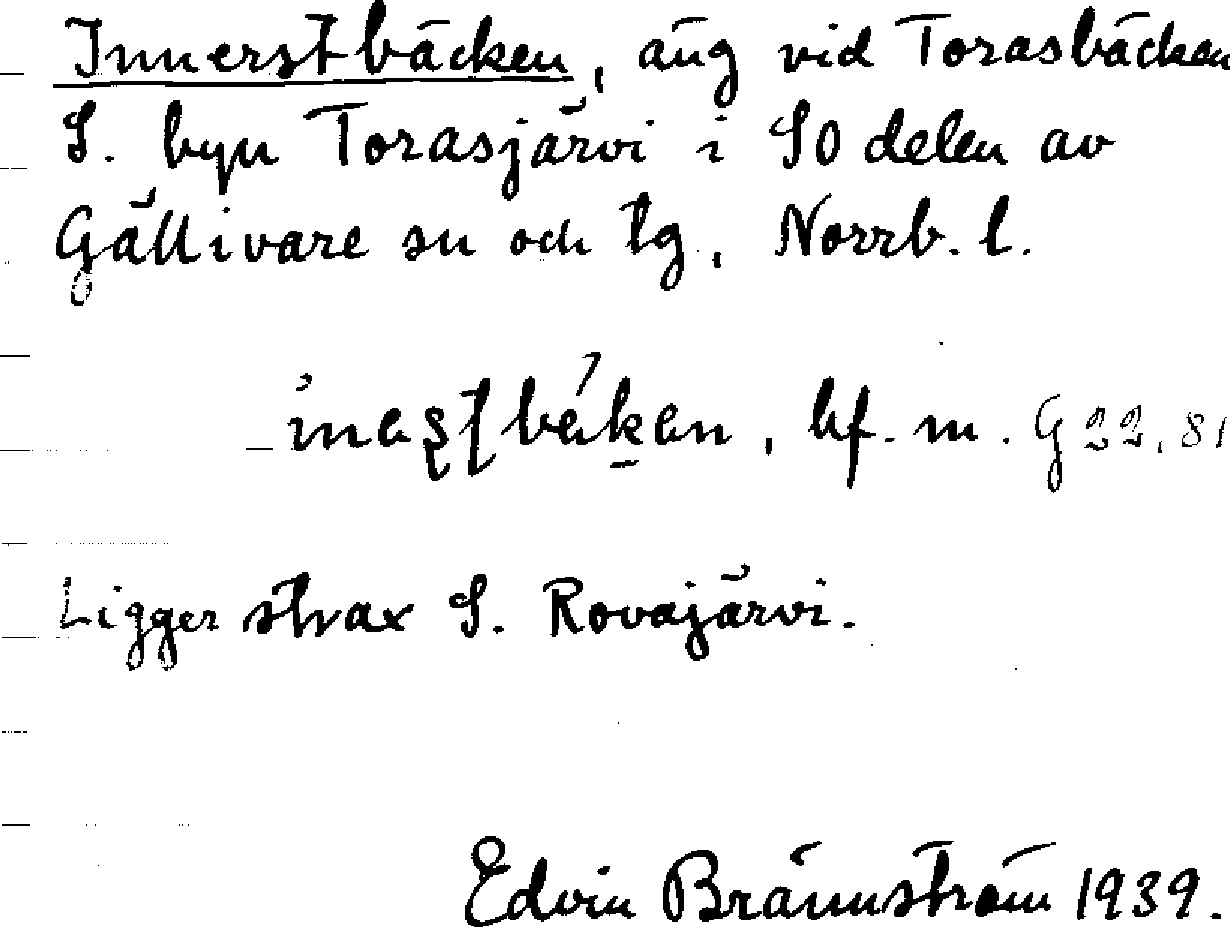 Innerstbäcken, äng vid Torasbäcken
S. byn Torasjärvi i SO delen av
Gällivare sn och tg, Norrb. l.
bf. m. G 22, 81
Ligger strax S. Rovajärvi.
Edvin Brännström 1939.